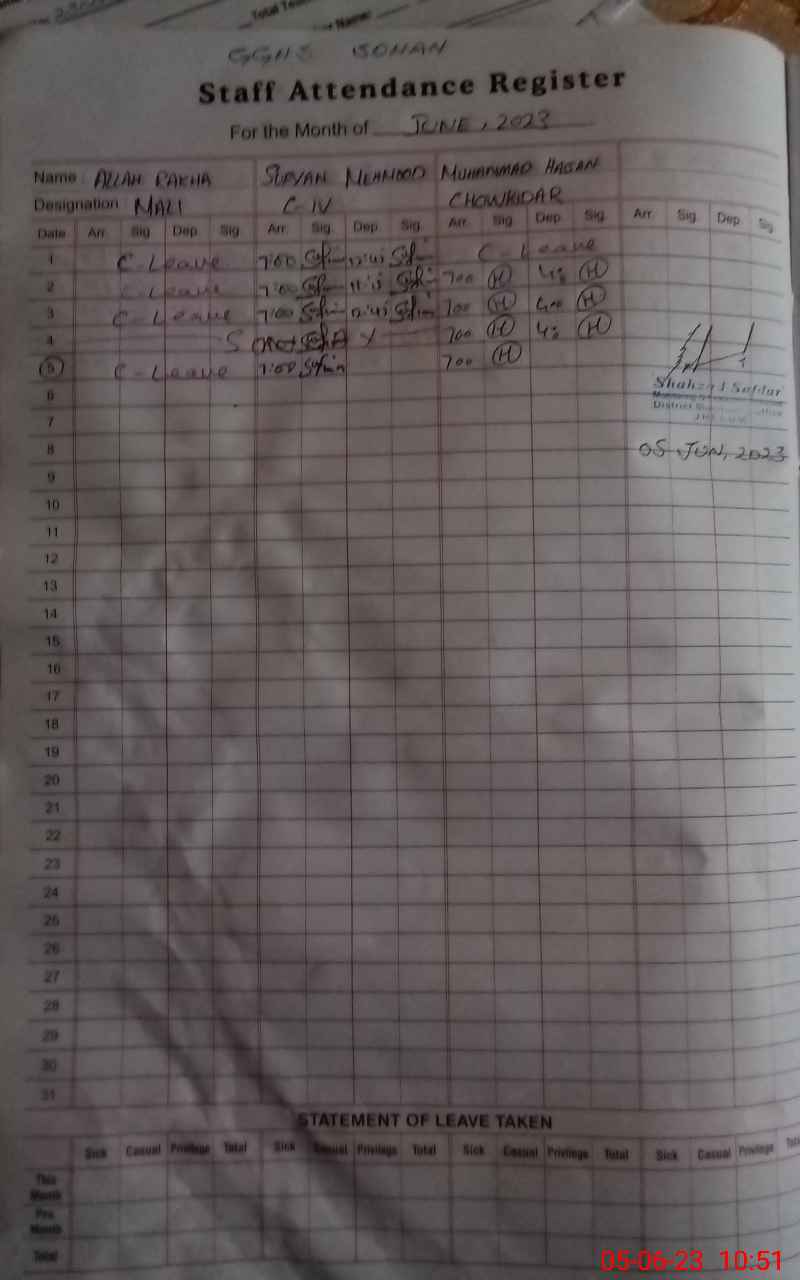 Total
Name:
GGHS SOHAN
Staff Attendance Register
For the Month of JUNE, 2023
Name ALLAH RAKHA SUFYAN MEHMOOD MUHAMMAD HASAN
Designation MALI C-IV CHOWKIDAR
Date Arr Sig Dep Sig Arr Sig Dep Sig Arr Sig Dep Sig Arr Sig Dep Sig
1 C-Leave 7:00 12:45 C-Leave
2 C-Leave 7:00 11:15 700 H H
3 C-Leave 7:00 12:45 700 H 400 H
4 S 700 H H
5 C-Leave 7:00 700 H
6
7
8
9
10
11
12
13
14
15
16
17
18
19
20
21
22
23
24
25
26
27
28
29
30
31
Shahzad Safdar
District
05 JUN, 2023
STATEMENT OF LEAVE TAKEN
Sick Casual Privilege Total Sick Casual Privilege Total Sick Casual Privilege Total Sick Casual Privilege
This Month
Pre. Month
Total
05-06-23 10:51